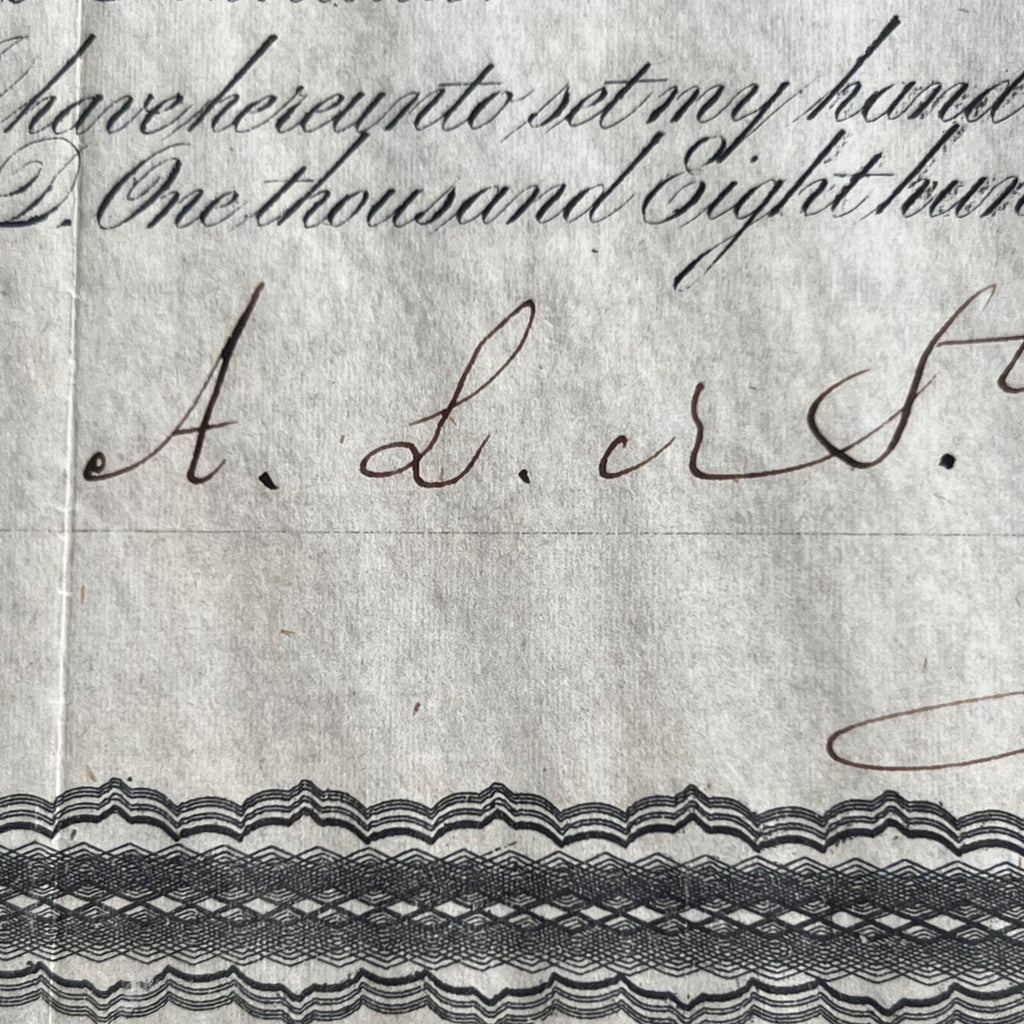 have hereunto set my hand
D. One thousand Eight hun
A. L.